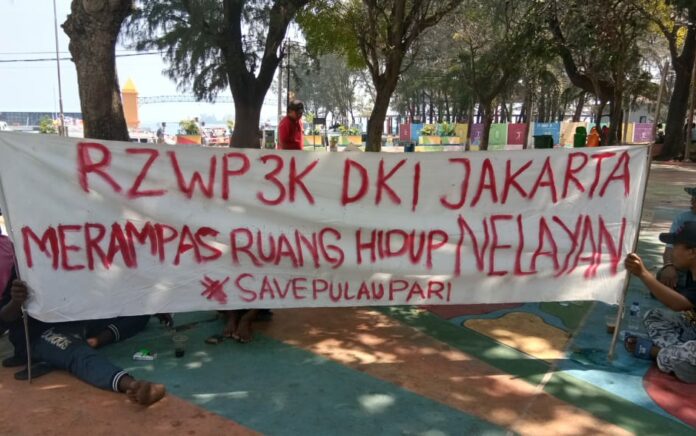 RZWP3K DKI JAKARTA
MERAMPAS RUANG HIDUP NELAYAN
#SAVEPULAUPARI